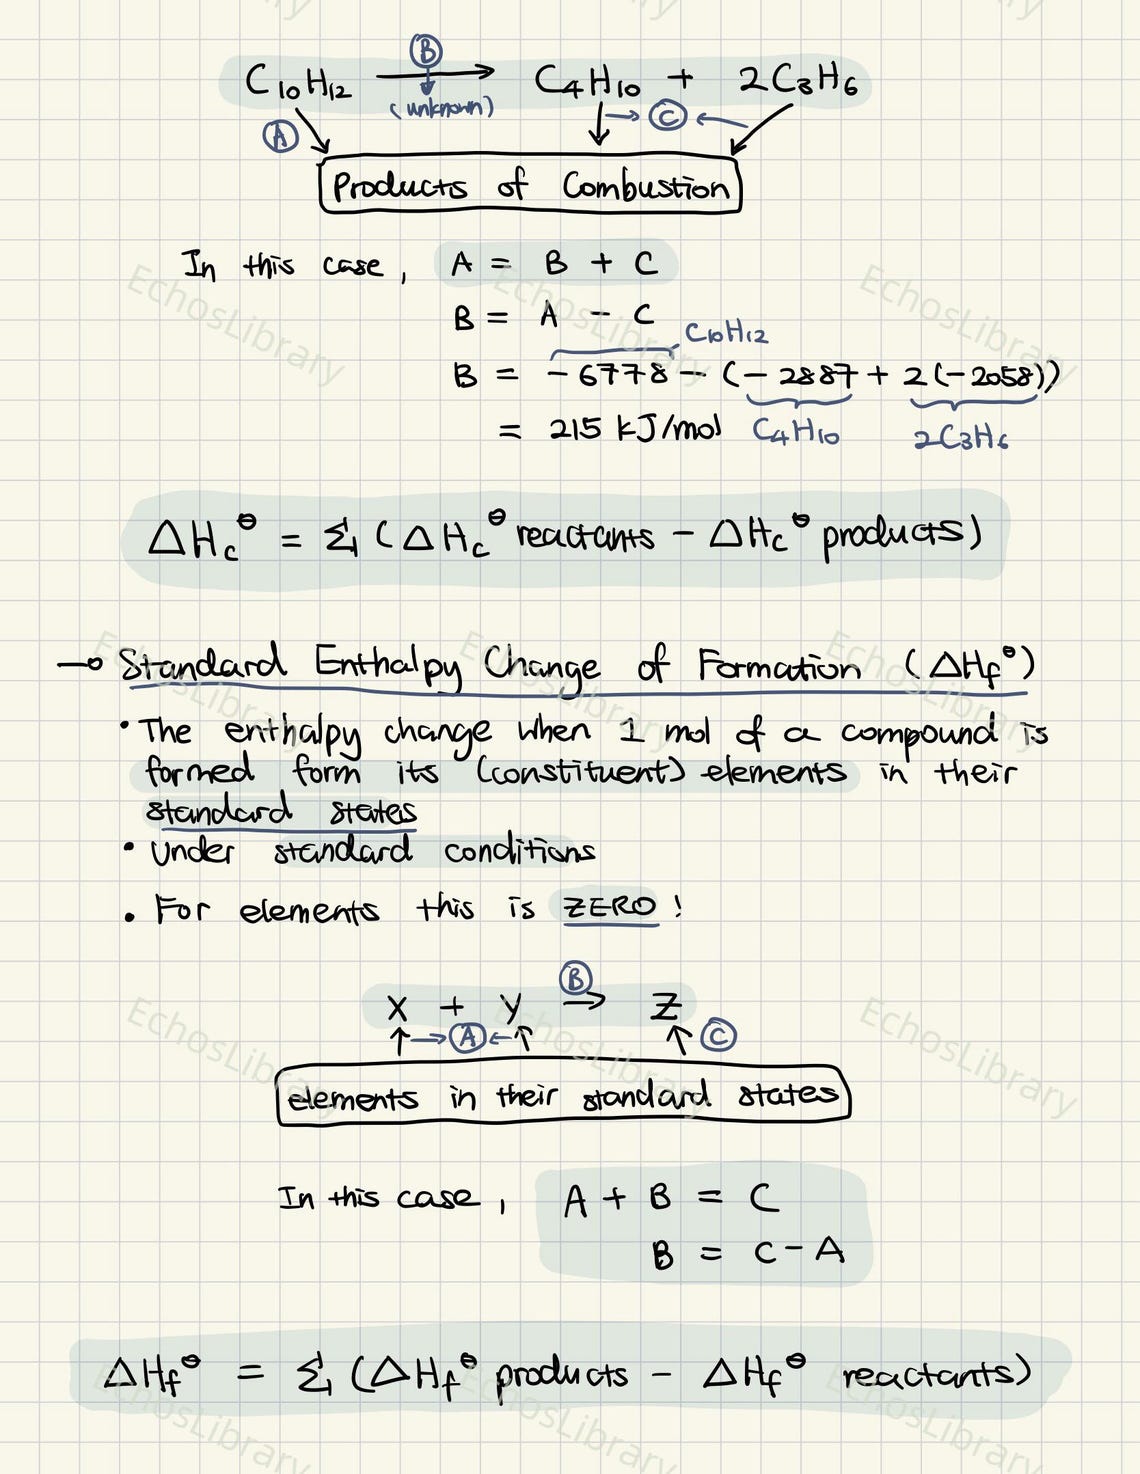 C₁₀H₁₂ → C₄H₁₀ + 2C₃H₆
Ⓑ
(unknown)
Ⓐ
→ Ⓒ ←
Products of Combustion
In this case, A = B + C
B = A - C
C₁₀H₁₂
B = -6778 - (-2887 + 2(-2058))
= 215 kJ/mol
C₄H₁₀ 2C₃H₆
ΔHc⦵ = Σ (ΔHc⦵ reactants - ΔHc⦵ products)
Standard Enthalpy Change of Formation (ΔHf⦵)
• The enthalpy change when 1 mol of a compound is
formed form its (constituent) elements in their
standard states
• Under standard conditions
• For elements this is ZERO!
Ⓑ
X + Y → Z
→ Ⓐ ← Ⓒ
elements in their standard states
In this case, A + B = C
B = C - A
ΔHf⦵ = Σ (ΔHf⦵ products - ΔHf⦵ reactants)
EchosLibrary